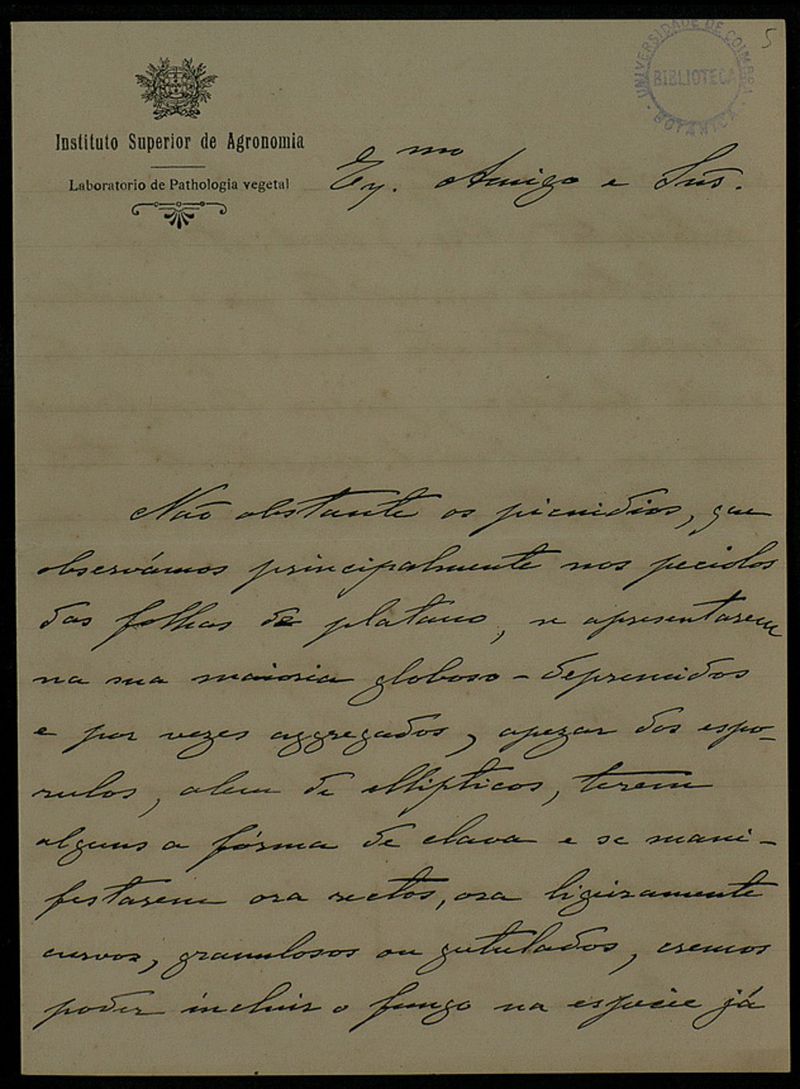 5
UNIVERSIDADE DE COIMBRA
BIBLIOTECA
BOTANICA
Instituto Superior de Agronomia
Laboratorio de Pathologia vegetal
Ex.mo Amigo e Snr.
Não obstante os picnidios, que
observámos principalmente nos peciolos
das folhas de platano, se apresentarem
na sua maioria globoso-depremidos
e por vezes aggregados, apezar dos espo-
rulos, alem de ellipticos, terem
alguns a fórma de clava e se mani-
festarem ora rectos, ora ligeiramente
curvos, granulosos ou gutulados, cremos
poder incluir o fungo na especie já